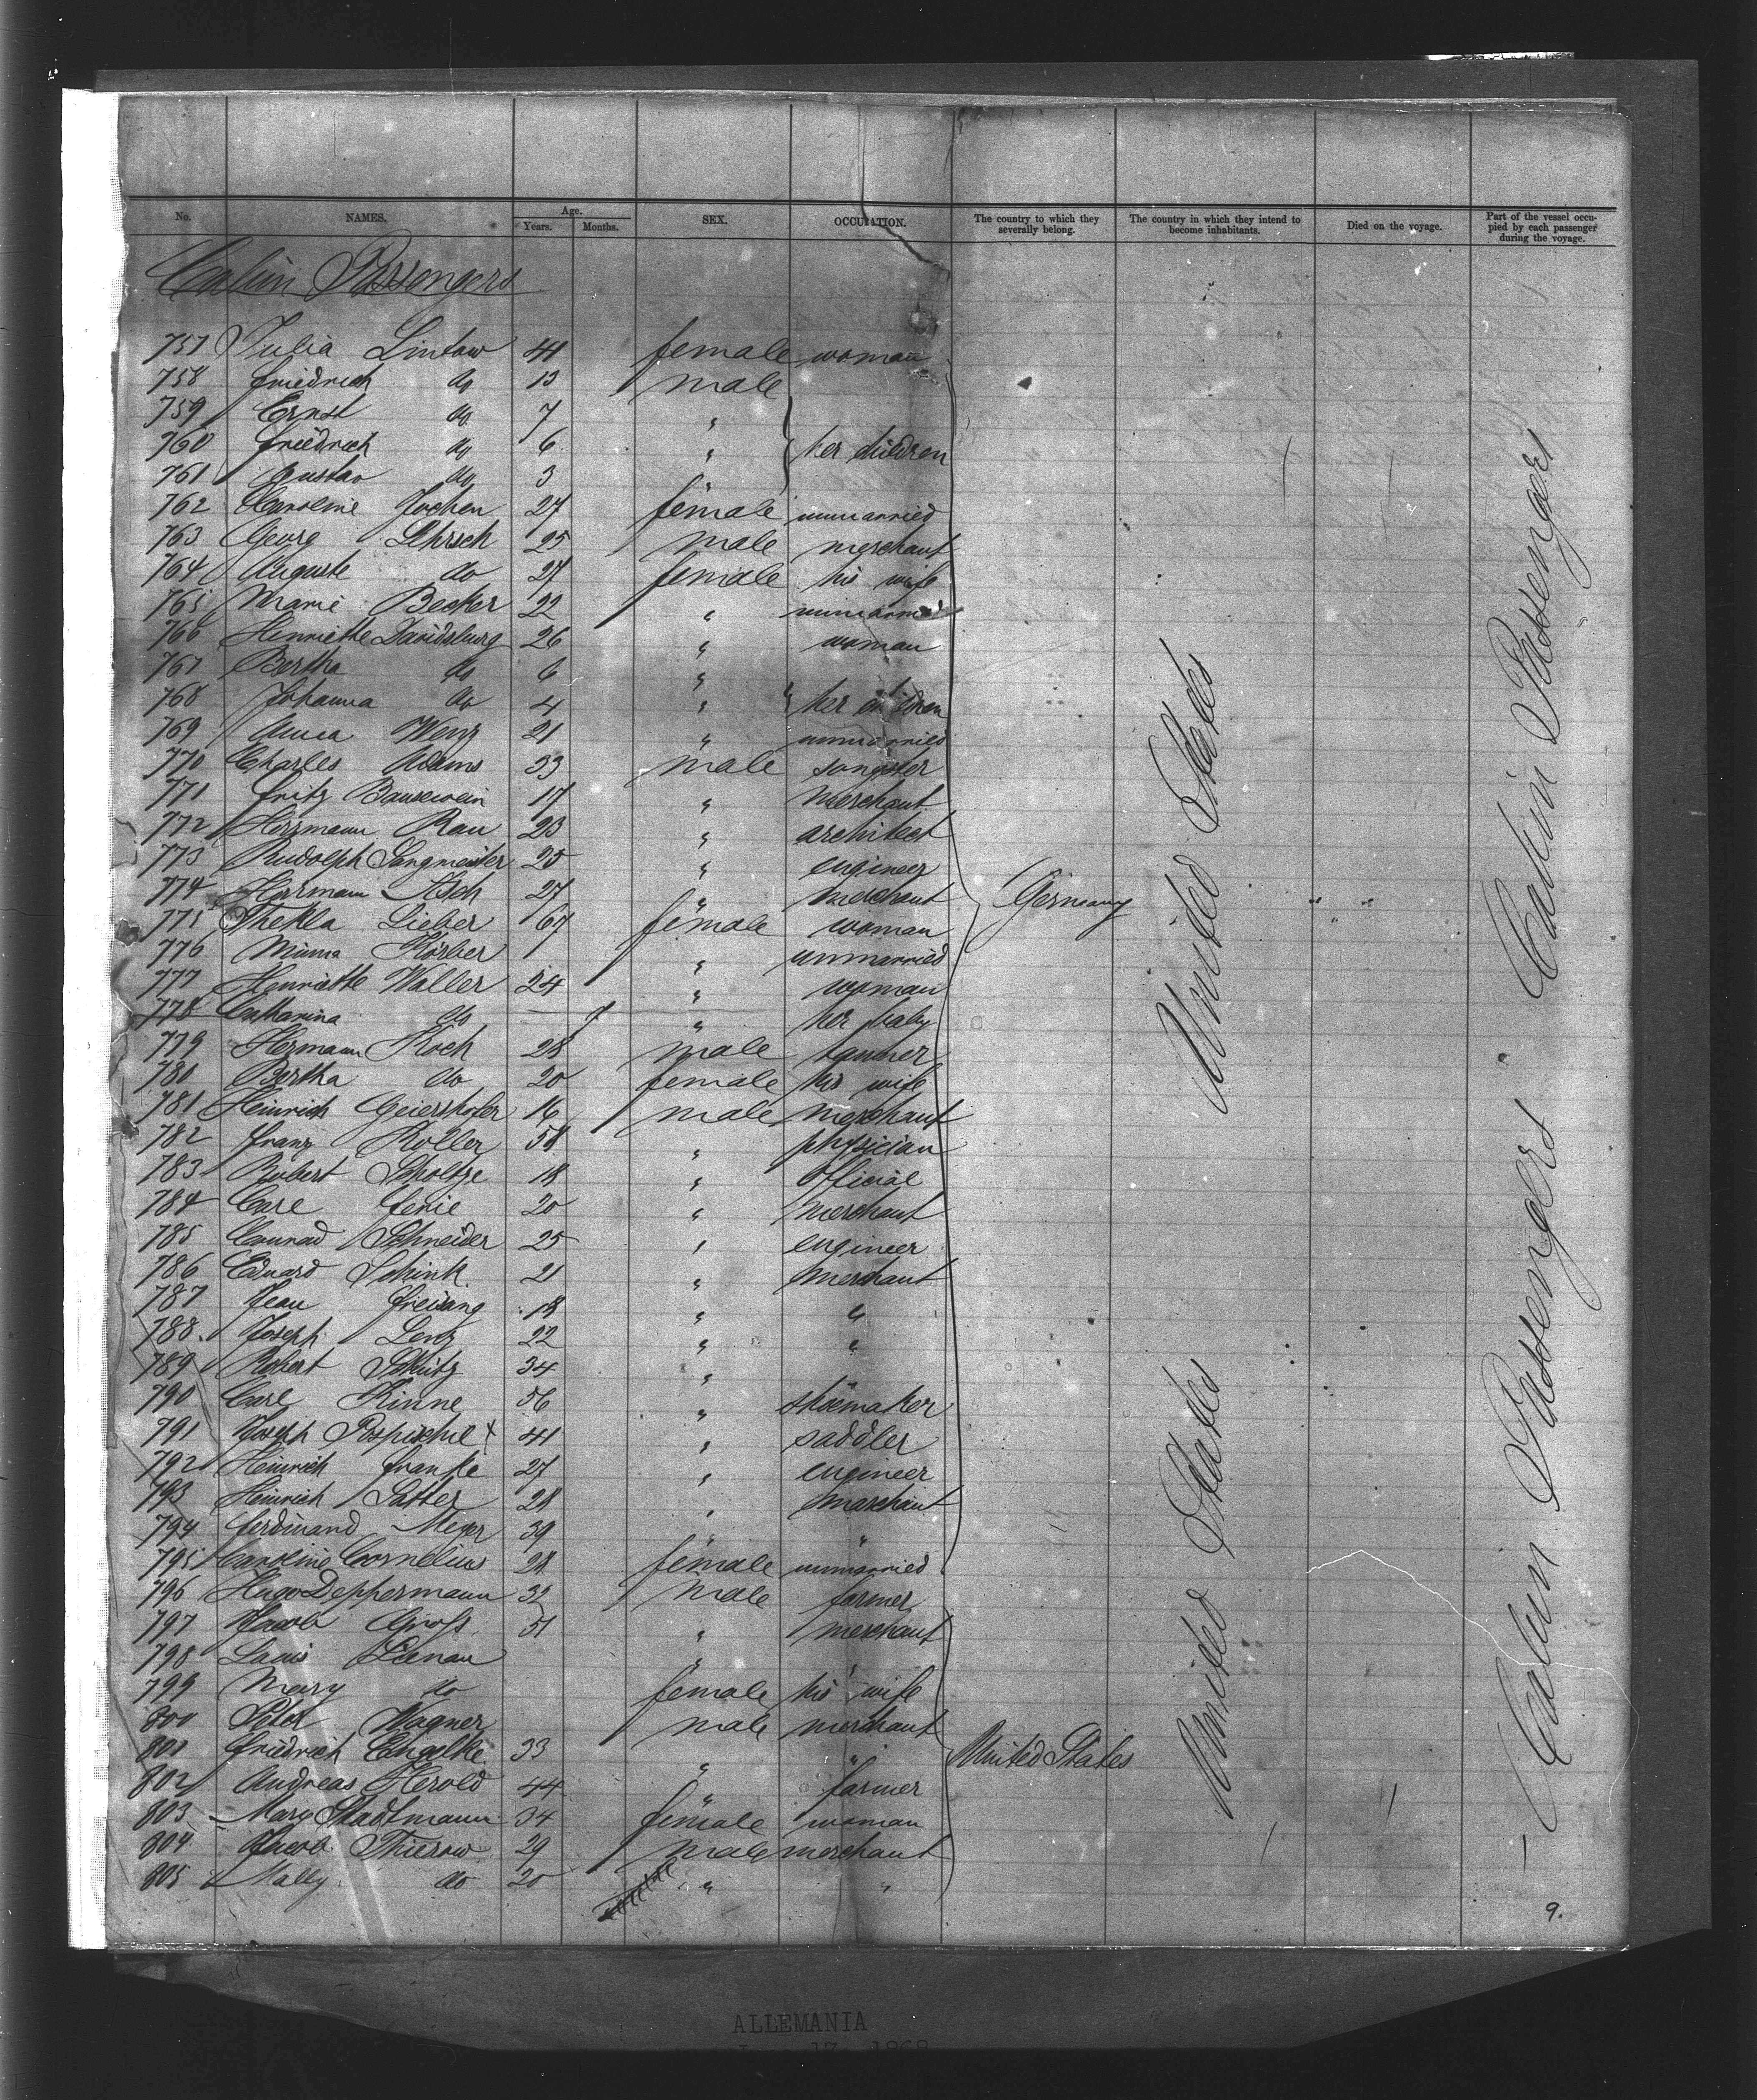 No. NAMES. Age. Years. Months. SEX. OCCUPATION. The country to which they severally belong. The country in which they intend to become inhabitants. Died on the voyage. Part of the vessel occupied by each passenger during the voyage.
Cabin Passengers
757 Julia Lintow 41 female woman
758 Friedrich do 13 male
759 Ernst do 7 "
760 Friedrich do 6 " her children
761 Gustav do 3 "
762 Caroline Jochen 27 female unmarried
763 Georg Lehrsch 25 male merchant
764 Auguste do 27 female his wife
765 Marie Becker 22 " unmarried
766 Henriette Davidsburg 26 " woman
767 Bertha do 6 "
768 Johanna do 4 " her children
769 Anna Wenz 21 " unmarried
770 Charles Adams 33 male songster
771 Fritz Bausewein 17 " merchant
772 Herrmann Rau 23 " architect
773 Rudolph Langmeister 25 " engineer
774 Herrmann Asch 27 " merchant Germany " "
775 Thekla Lieber 67 female woman
776 Minna Körber " unmarried
777 Henriette Waller 24 " woman
778 Catharina do — 7 " her baby
779 Hermann Koch 28 male tanner
780 Bertha do 20 female his wife
781 Heinrich Geiershofer 16 male merchant
782 Franz Roller 58 " physician
783 Robert Scholtze 18 " official
784 Carl Ferie 20 " merchant
785 Conrad Schneider 25 " engineer
786 Eduard Schink 21 " merchant
787 Jean Freisang 18 " "
788 Joseph Lenz 22 " "
789 Robert Schütz 34 "
790 Carl Kinne 56 " shoemaker
791 Joseph Pospischil x 41 " saddler
792 Heinrich Franke 27 " engineer
793 Heinrich Satter 28 " marchant
794 Ferdinand Meyer 39 " "
795 Caroline Cornelius 28 female unmarried
796 Hugo Deppermann 32 male farmer
797 Jacob Gross 51 " merchant
798 Louis Lienau " "
799 Mary do female his wife
800 Peter Wagner male merchant
801 Friedrich Engelke 33 " " United States
802 Andreas Herold 44 " farmer
803 Mary Stadtmann 34 female woman
804 Jacob Thierow 29 male merchant
805 Mally do 20 " "
United States
United States
Cabin Passengers
Cabin Passengers
9.
ALLEMANIA
17 1868